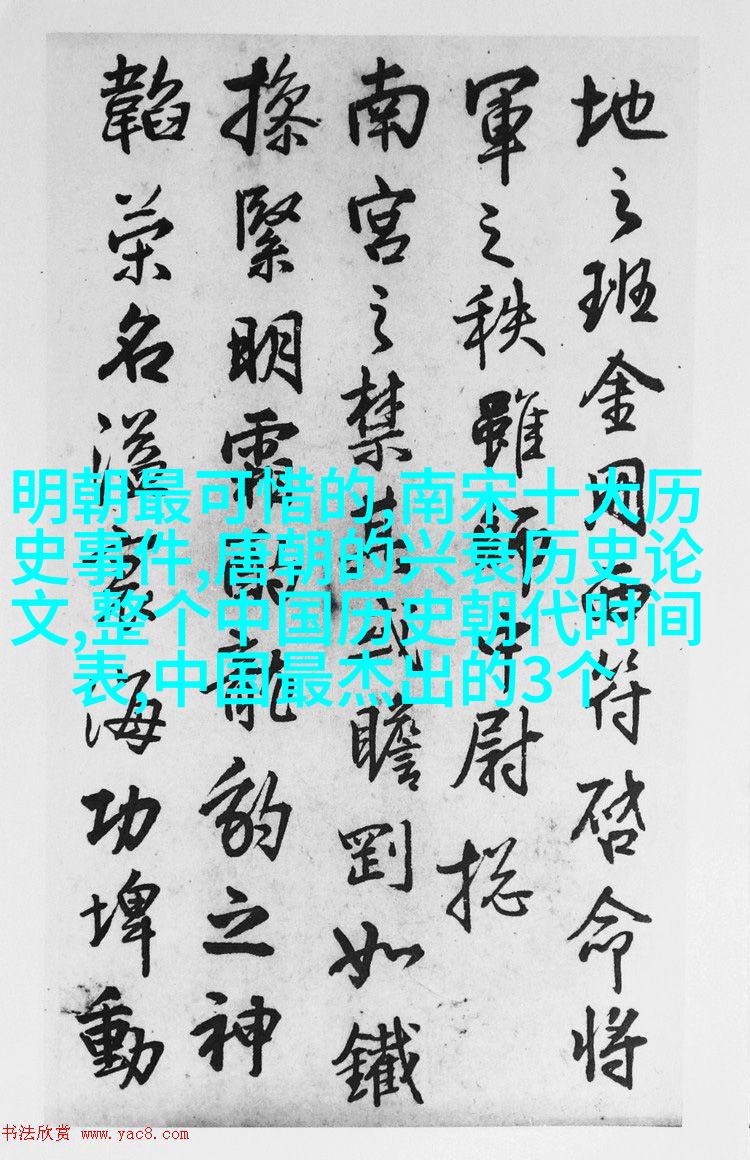 地之班金用符啓命将
軍之秩雖師尉揔
南宮之禁或瞻剛如鐵
操緊明霜龍豹之神
韜荣名溢海功埤動
明朝最可惜的,南宋十大历
史事件,唐朝的兴衰历史论
文,整个中国历史朝代时间
表,中国最杰出的3个
书法欣赏 www.yac8.com